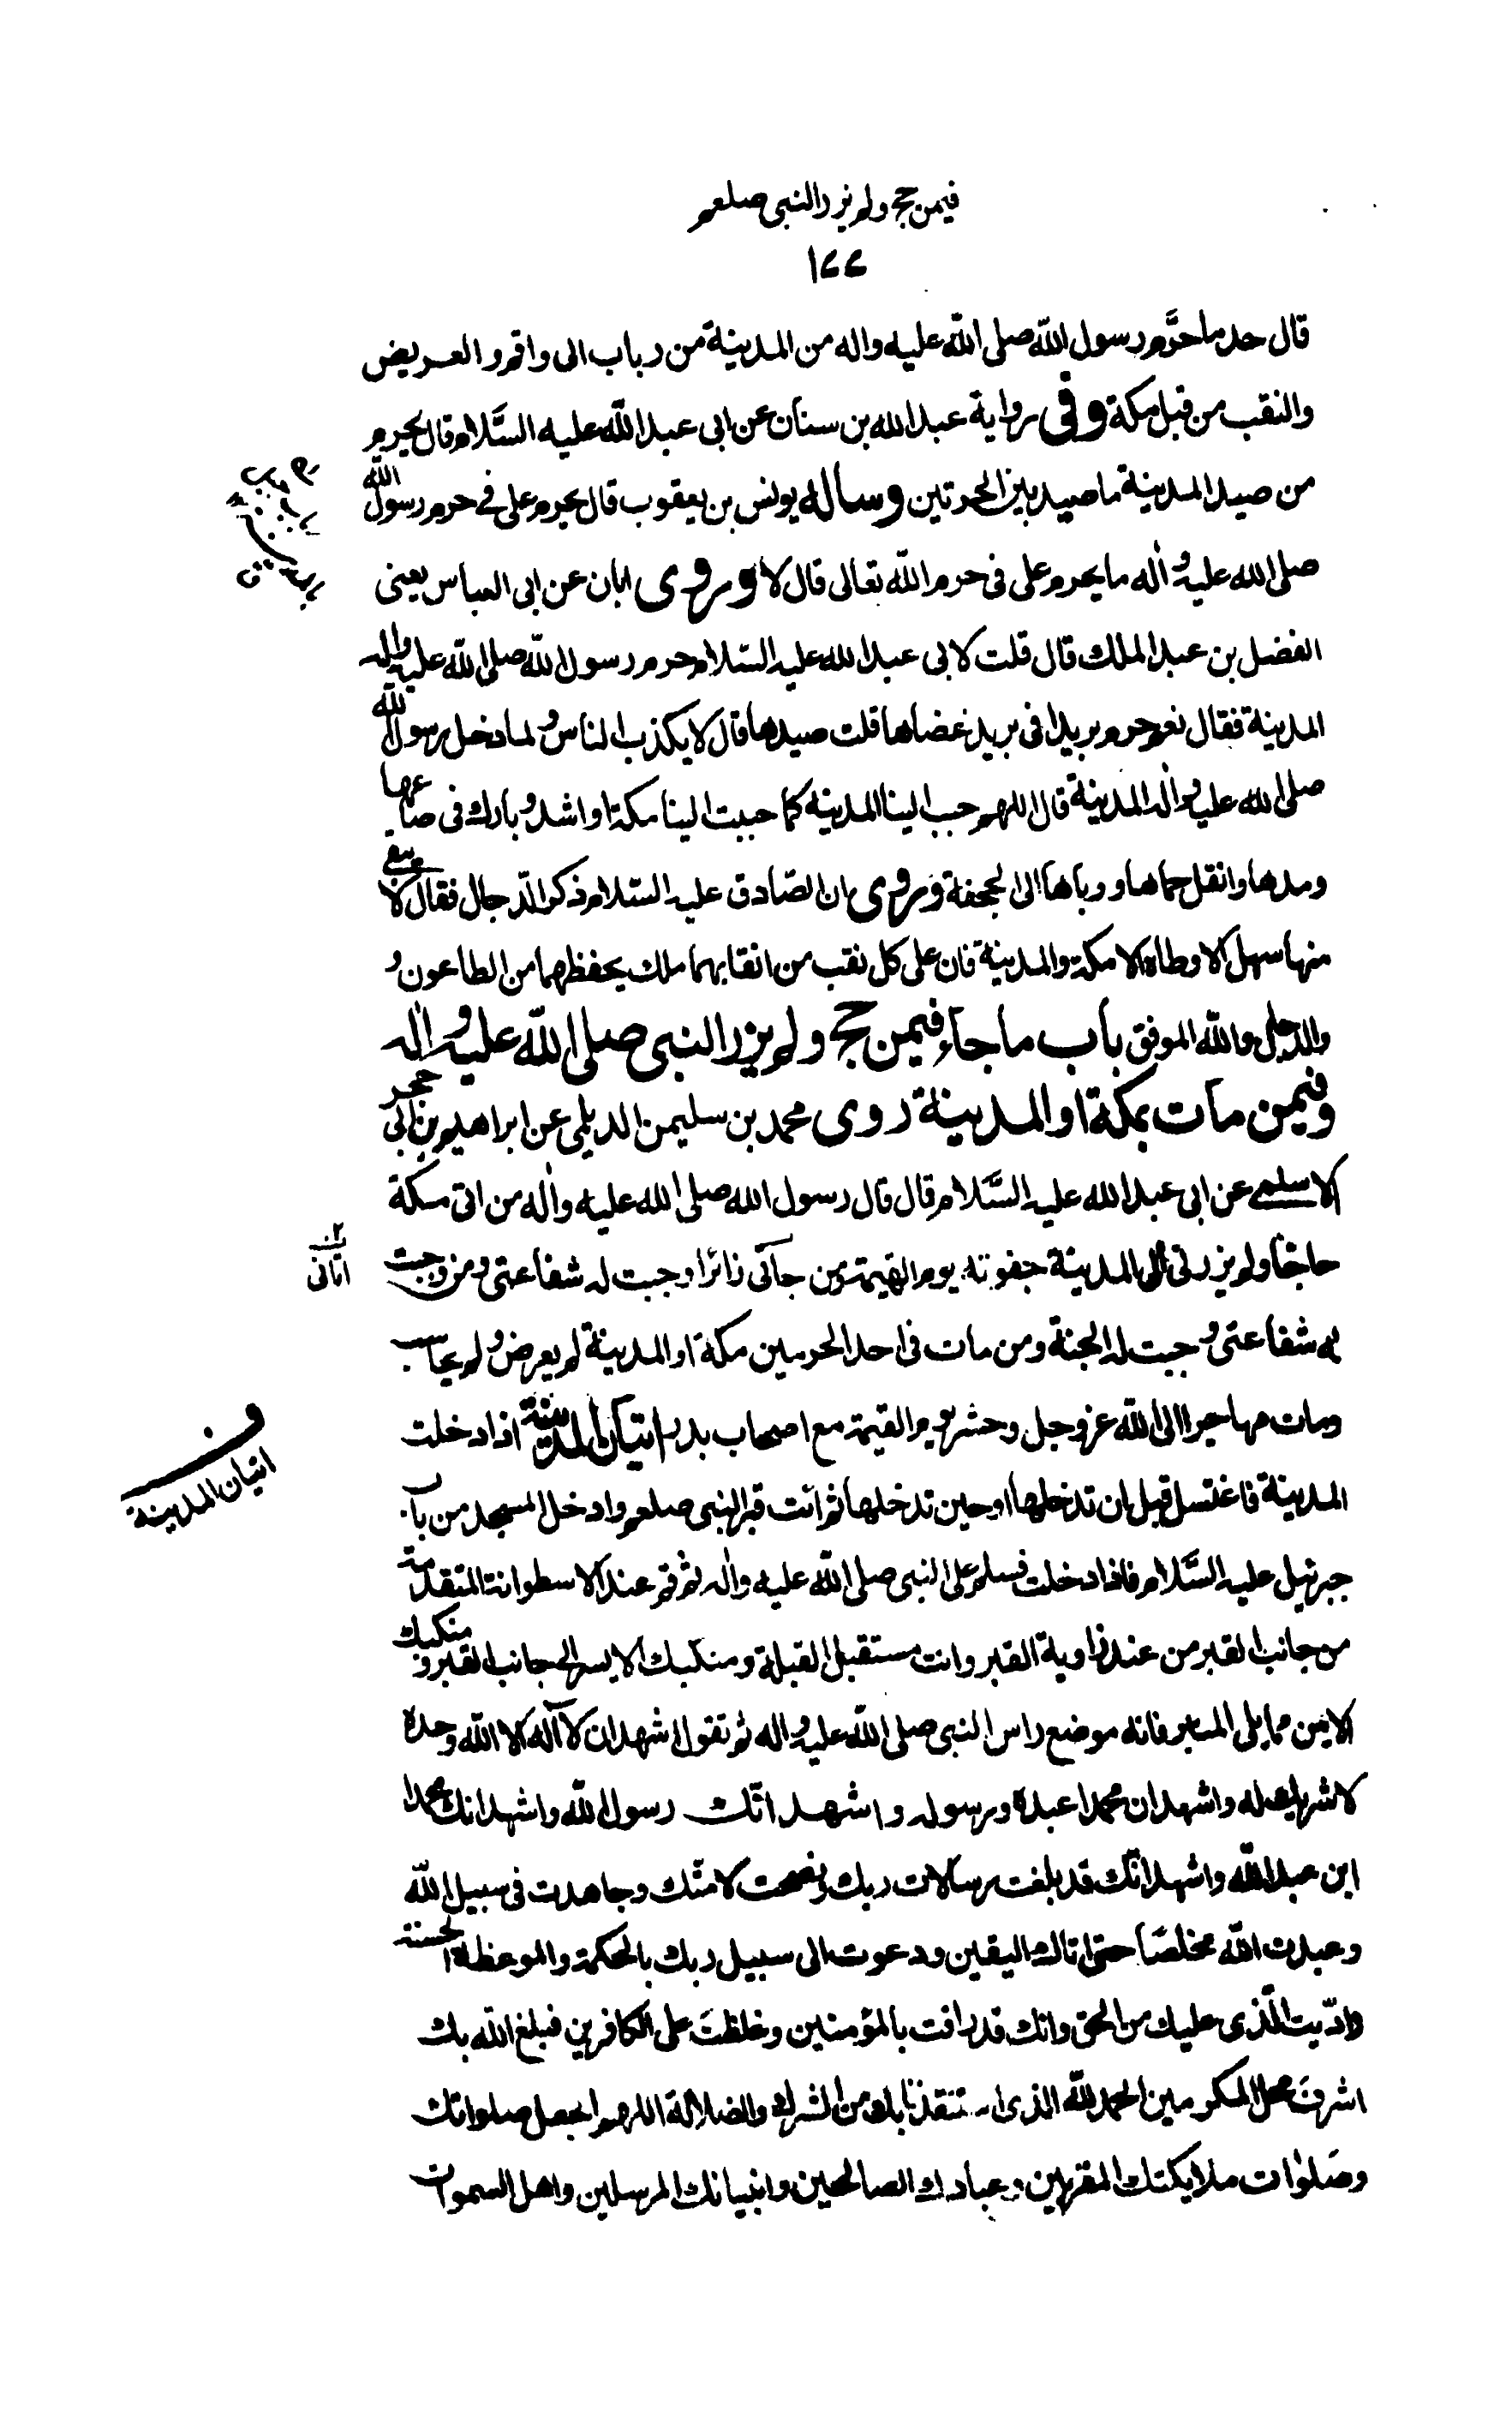 فيمن حج ولم يزر النبي صلعم
١٧٧
قال حد ما حرَّم رسول الله صلى الله عليه واله من المدينة من رباب الى واقم والعريض
والنقب من قبل مكة وفي رواية عبد الله بن سنان عن ابي عبد الله عليه السَّلام قال يحرم
من صيد المدينة ما صيد بين الحرتين وساله يونس بن يعقوب قال يحرم على في حرم رسول الله
صلى الله عليه واله ما يحرم على في حرم الله تعالى قال لا وروى ابان عن ابي العباس يعني
الفضل بن عبد الملك قال قلت لابي عبد الله عليه السّلام حرم رسول الله صلى الله عليه واله
المدينة فقال نعم حرم بريدا في بريد غضاها قلت صيدها قال لا يكذب الناس ولما دخل رسول الله
صلى الله عليه واله المدينة قال اللهم حبب الينا المدينة كما حببت الينا مكة او اشد وبارك في صاعها
ومدها وانقل حماها ووباها الى الجحفة وروى ان الصّادق عليه السّلام ذكر الدّجال فقال لا يبقى
منها سهل الا وطاه الا مكة والمدينة فان على كل نقب من انقابهما ملك يحفظهما من الطاعون و
والدجال والله الموفق باب ما جاء فيمن حج ولم يزر النبي صلى الله عليه واله
وفيمن مات بمكة او المدينة روى محمد بن سليمن الديلمي عن ابراهيم بن ابي حجر
الاسلمي عن ابي عبد الله عليه السَّلام قال قال رسول الله صلى الله عليه واله من اتى مكة
حاجّا ولم يزرني الى المدينة جفوته يوم القيمة ومن جآئى زائرا وجبت له شفاعتي ومن وجبت
اتانى
له شفاعتي وجبت له الجنة ومن مات في احد الحرمين مكة او المدينة لم يعرض ولم يحاسب
ومات مهاجرا الى الله عز وجل وحشر يوم القيمة مع اصحاب بدر اتيان المدينة اذا دخلت
اتيان المدينة
المدينة فاغتسل قبل ان تدخلها او حين تدخلها ثم ائت قبر النبي صلعم وادخل المسجد من باب
جبرئيل عليه السَّلام فاذا دخلت فسلم على النبي صلى الله عليه واله ثم قم عند الاسطوانة المتقدمة
من جانب القبر من عند زاوية القبر وانت مستقبل القبلة ومنكبك الايسر الى جانب القبر ومنكبك
الايمن مما يلي المنبر فانه موضع راس النبي صلى الله عليه واله ثم تقول اشهد ان لا آله الا الله وحده
لا شريك له واشهد ان محمدا عبده ورسوله واشهد انّك رسول الله واشهد انك محمدا
ابن عبد الله واشهد انّك قد بلغت رسالات ربك ونصحت لامتك وجاهدت في سبيل الله
وعبدت الله مخلصًا حتى اتاك اليقين ودعوت الى سبيل ربك بالحكمة والموعظة الحسنة
وادّيت الّذي عليك من الحق وانك قد رافت بالمؤمنين وغلظتَ على الكافرين فبلغ الله بك
اشرف محل المكرمين الحمد لله الذي استنقذنا بك من الشرك والضلالة اللهم اجعل صلواتك
وصَلوات ملايكتك المقربين وعبادك الصالحين وانبيائك المرسلين واهل السموات